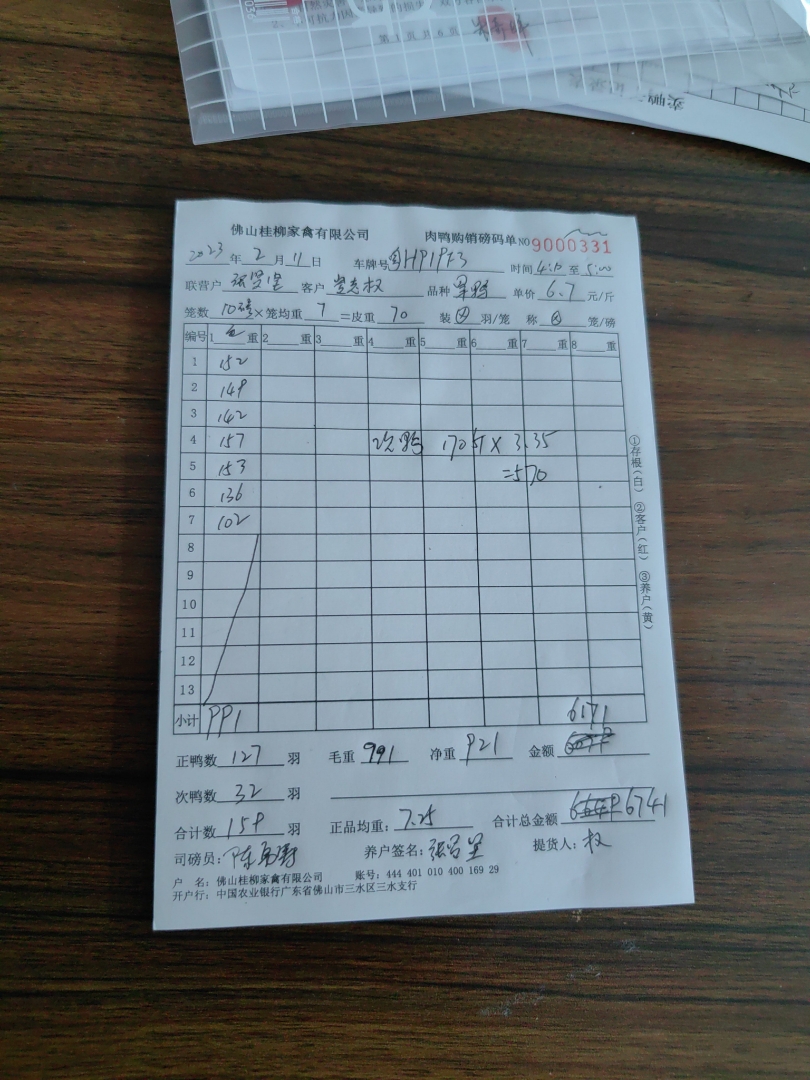 第 1 页 共 6 页
卖鸭
佛山桂柳家禽有限公司 肉鸭购销磅码单 NO 9000331
2023 年 2 月 11 日 车牌号 HP19F3 时间 4:10 至 5:00
联营户 客户 品种 单价 6.7 元/斤
笼数 10 ×笼均重 7 =皮重 70 装 羽/笼 称 笼/磅
编号 1 重 2 重 3 重 4 重 5 重 6 重 7 重 8 重
1 152
2 149
3 142
4 157 次鸭 170斤×3.35
5 153 =570
6 136
7 102
8
9
10
11
12
13
小计 991 6171
正鸭数 127 羽 毛重 991 净重 921 金额
次鸭数 32 羽
合计数 159 羽 正品均重: 7.25 合计总金额 6741
司磅员: 养户签名: 提货人: 权
户 名: 佛山桂柳家禽有限公司 账号: 444 401 010 400 169 29
开户行: 中国农业银行广东省佛山市三水区三水支行
①存根(白) ②客户(红) ③养户(黄)